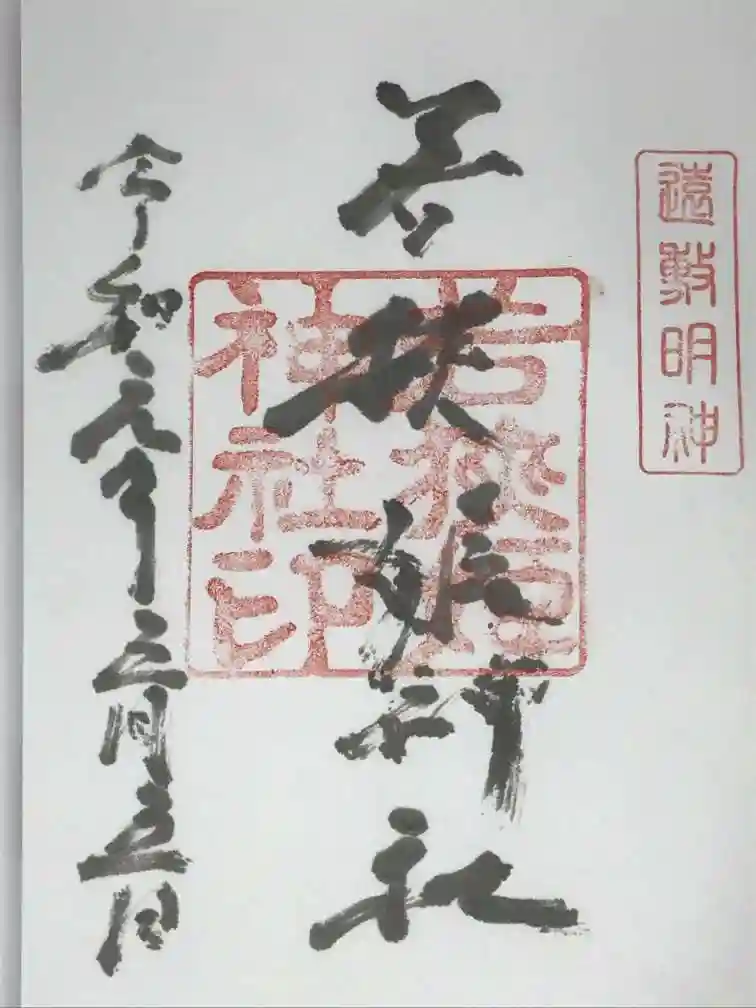 遠敷明神
若狭姫神社
若狹姫
神社印
令和元年五月五日